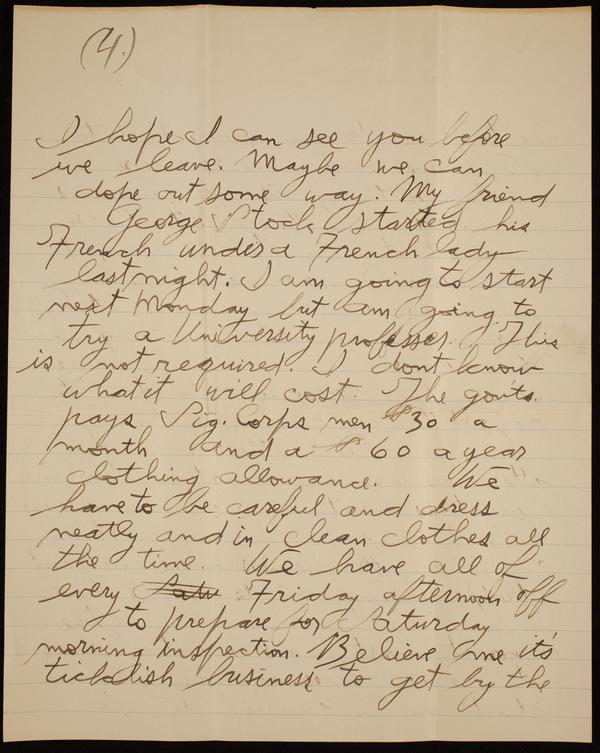 (4.)
I hope I can see you before
we leave. Maybe we can
dope out some way. My friend
George Stock started his
French under a French lady
last night. I am going to start
next Monday but am going to
try a University professor. This
is not required. I dont know
what it will cost. The gov'ts.
pays Sig. Corps men $30 a
month and a $60 a year
clothing allowance. We
have to be careful and dress
neatly and in clean clothes all
the time. We have all of
every Satu Friday afternoon off
to prepare for Saturday
morning inspection. Believe me it's
ticklish business to get by the